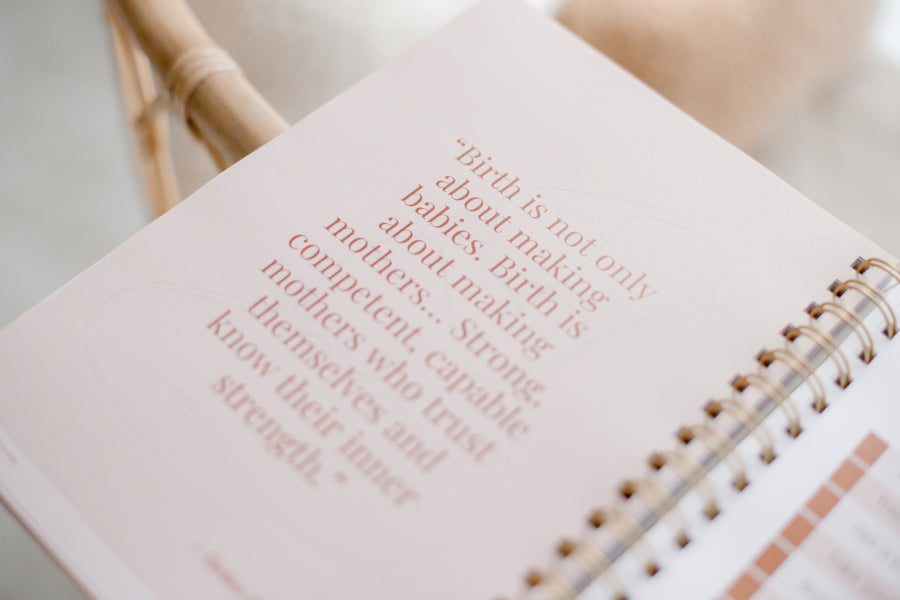 “Birth is not only
about making
babies. Birth is
about making
mothers... Strong,
competent, capable
mothers who trust
themselves and
know their inner
strength.”